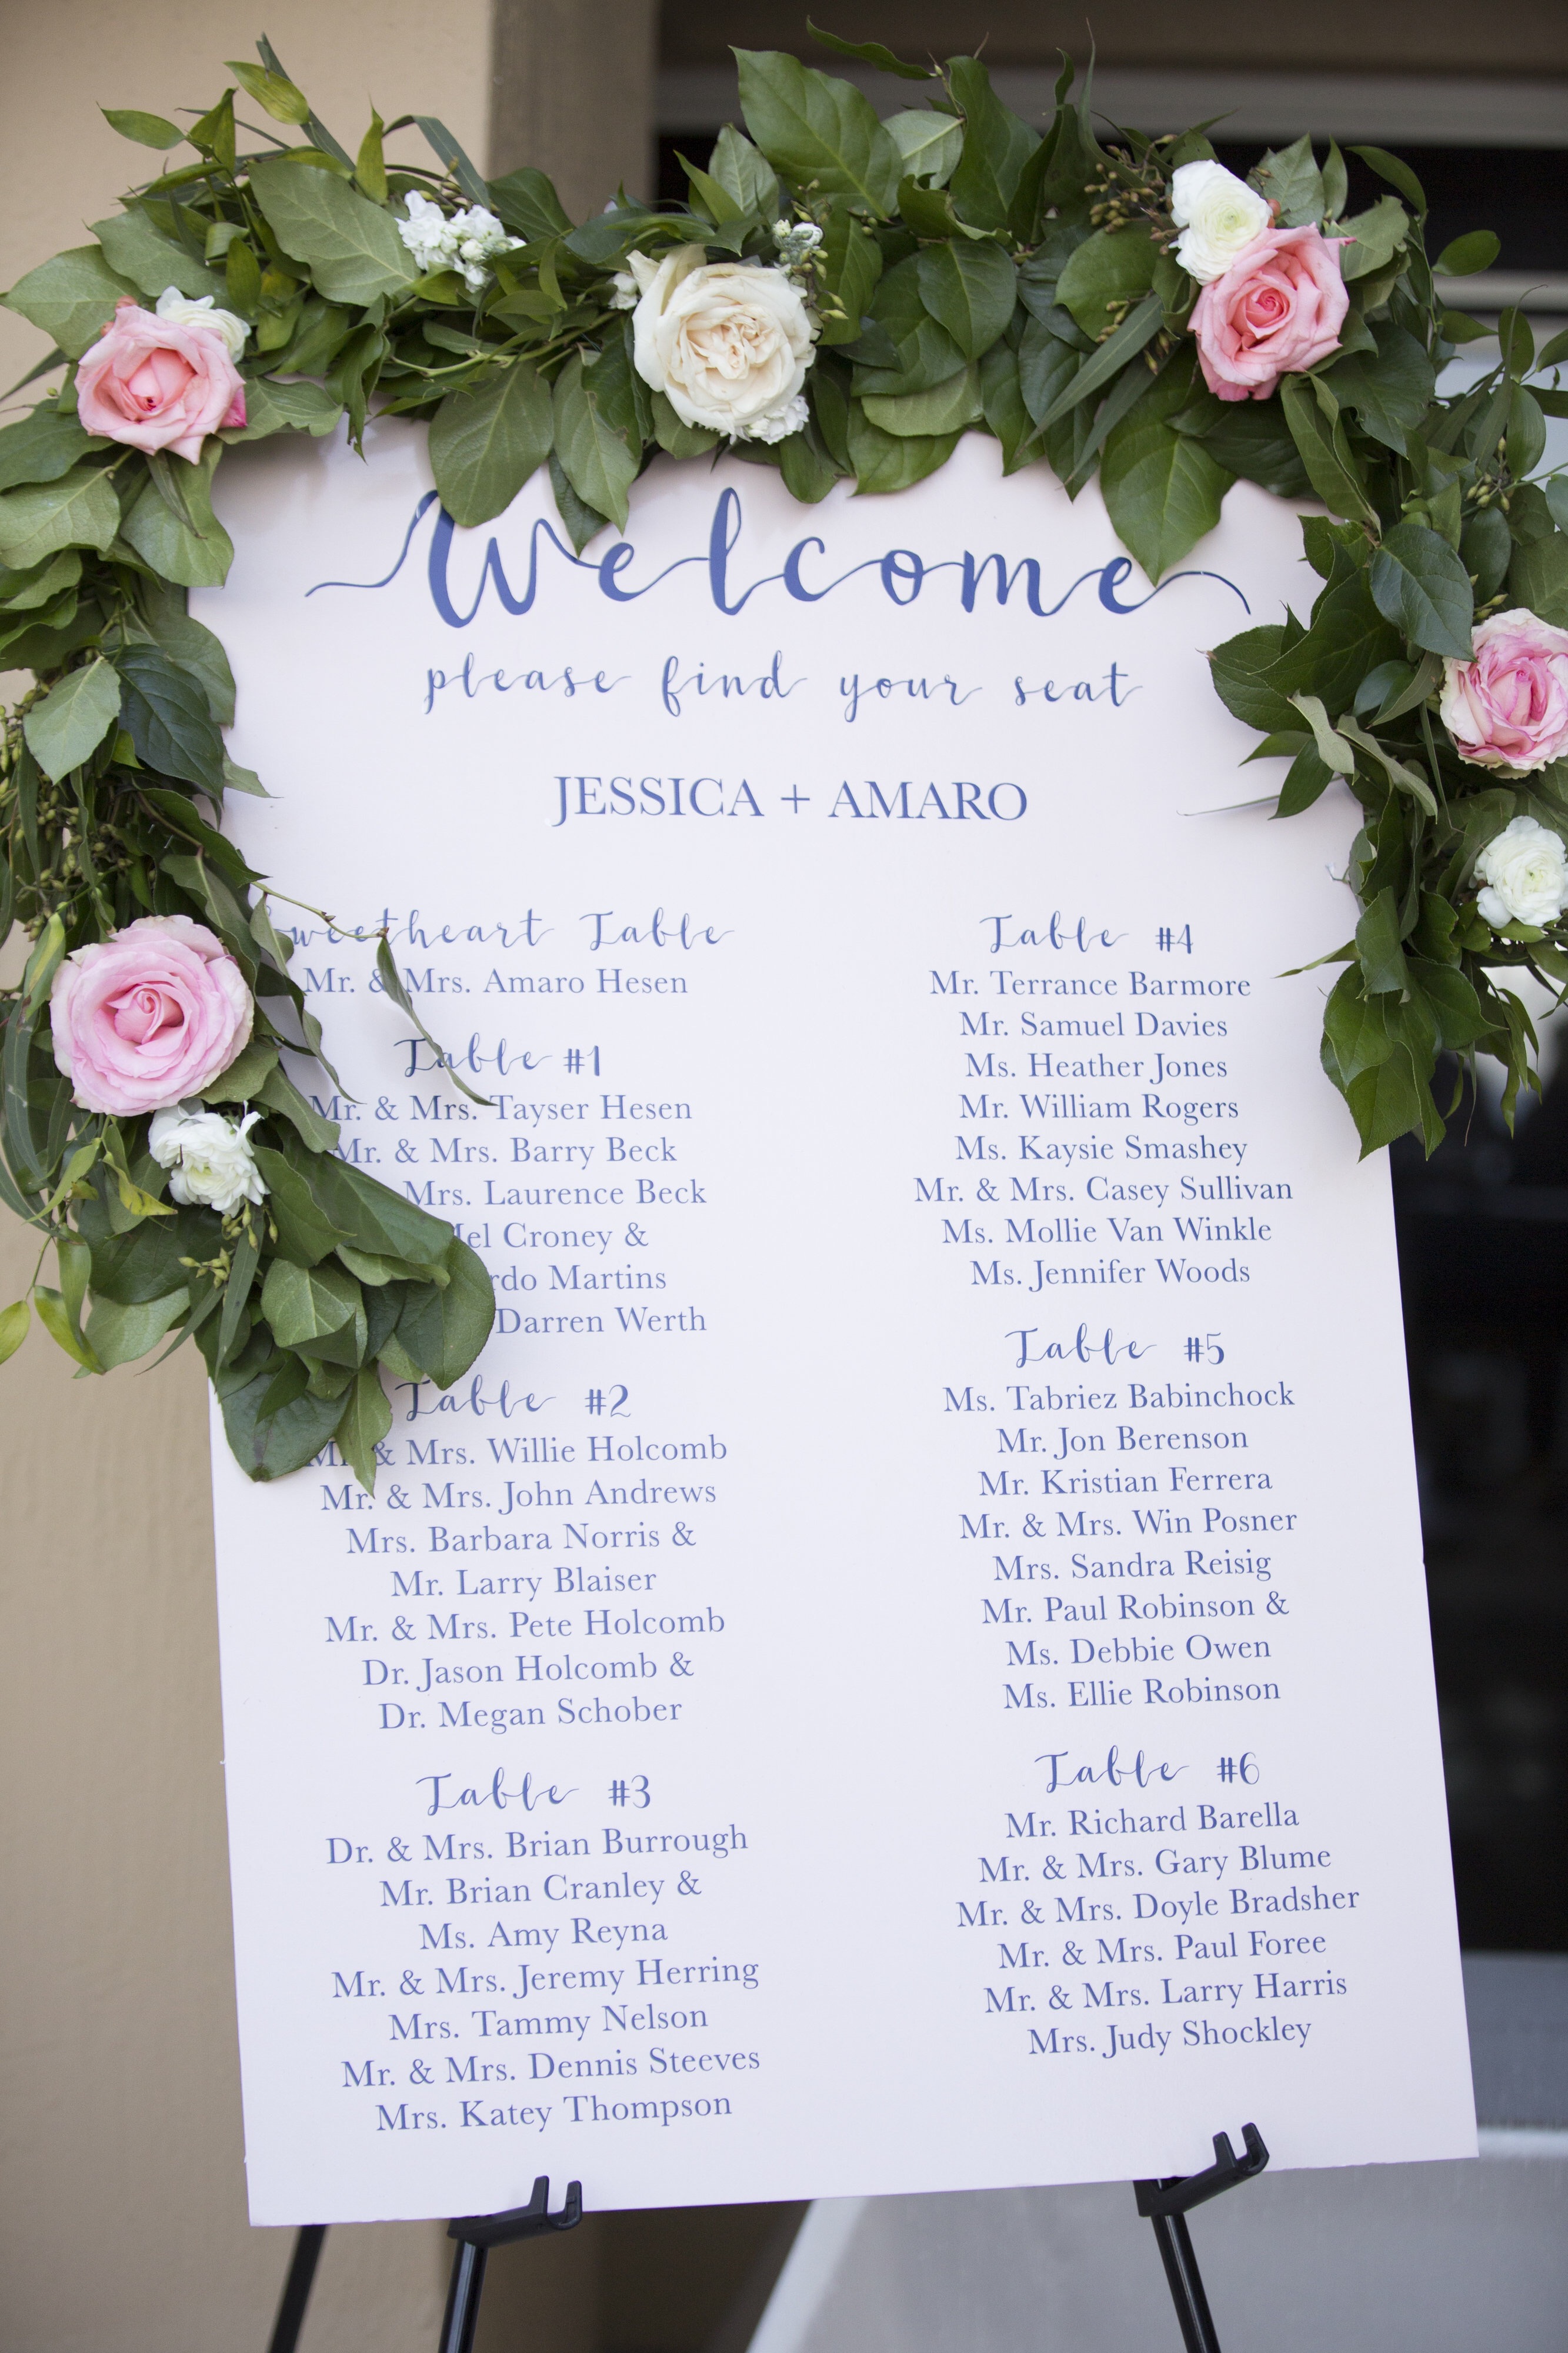 Welcome
please find your seat
JESSICA + AMARO
Sweetheart Table
Mr. & Mrs. Amaro Hesen
Table #1
Mr. & Mrs. Tayser Hesen
Mr. & Mrs. Barry Beck
Mrs. Laurence Beck
Croney &
Martins
Darren Werth
Table #2
Mr. & Mrs. Willie Holcomb
Mr. & Mrs. John Andrews
Mrs. Barbara Norris &
Mr. Larry Blaiser
Mr. & Mrs. Pete Holcomb
Dr. Jason Holcomb &
Dr. Megan Schober
Table #3
Dr. & Mrs. Brian Burrough
Mr. Brian Cranley &
Ms. Amy Reyna
Mr. & Mrs. Jeremy Herring
Mrs. Tammy Nelson
Mr. & Mrs. Dennis Steeves
Mrs. Katey Thompson
Table #4
Mr. Terrance Barmore
Mr. Samuel Davies
Ms. Heather Jones
Mr. William Rogers
Ms. Kaysie Smashey
Mr. & Mrs. Casey Sullivan
Ms. Mollie Van Winkle
Ms. Jennifer Woods
Table #5
Ms. Tabriez Babinchock
Mr. Jon Berenson
Mr. Kristian Ferrera
Mr. & Mrs. Win Posner
Mrs. Sandra Reisig
Mr. Paul Robinson &
Ms. Debbie Owen
Ms. Ellie Robinson
Table #6
Mr. Richard Barella
Mr. & Mrs. Gary Blume
Mr. & Mrs. Doyle Bradsher
Mr. & Mrs. Paul Foree
Mr. & Mrs. Larry Harris
Mrs. Judy Shockley